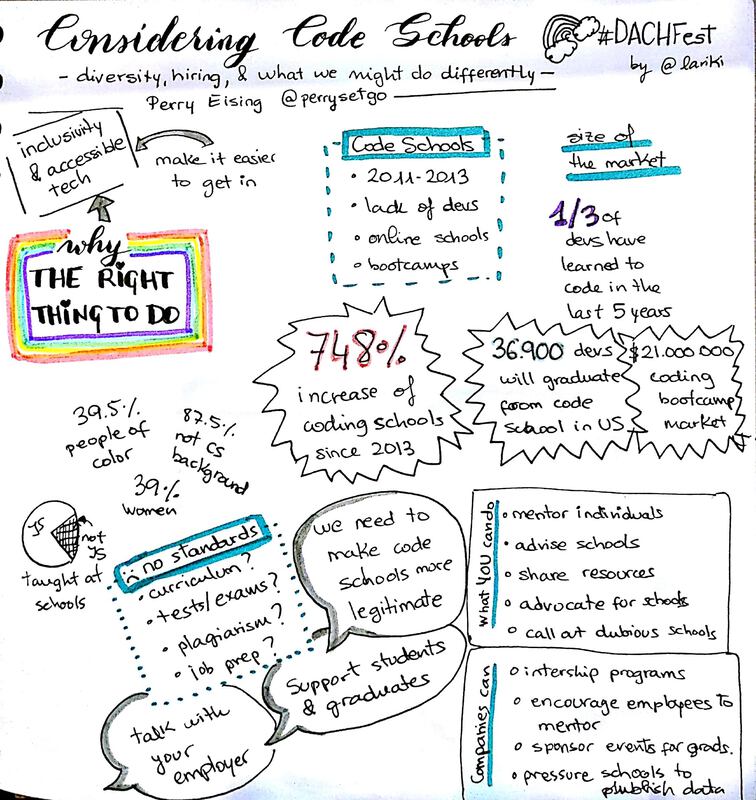 Considering Code Schools
#DACHFest
by @lariki
- diversity, hiring, & what we might do differently -
Perry Eising @perrysetgo
inclusivity
& accessible
tech
make it easier
to get in
why
THE RIGHT
THING TO DO
Code Schools
• 2011-2013
• lack of devs
• online schools
• bootcamps
size of
the market
1/3 of
devs have
learned to
code in the
last 5 years
748%
increase of
coding schools
since 2013
36.900 devs
will graduate
from code
school in US
$21.000.000
coding
bootcamp
market
39.5%
people of
color
87.5%
not CS
background
39%
women
JS
not
JS
taught at
schools
:( no standards
• curriculum?
• tests/exams?
• plagiarism?
• job prep?
we need to
make code
schools more
legitimate
Support students
& graduates
talk with
your
employer
What YOU can do
• mentor individuals
• advise schools
• share resources
• advocate for schools
• call out dubious schools
Companies can
• intership programs
• encourage employees to
mentor
• sponsor events for grads.
• pressure schools to
publish data